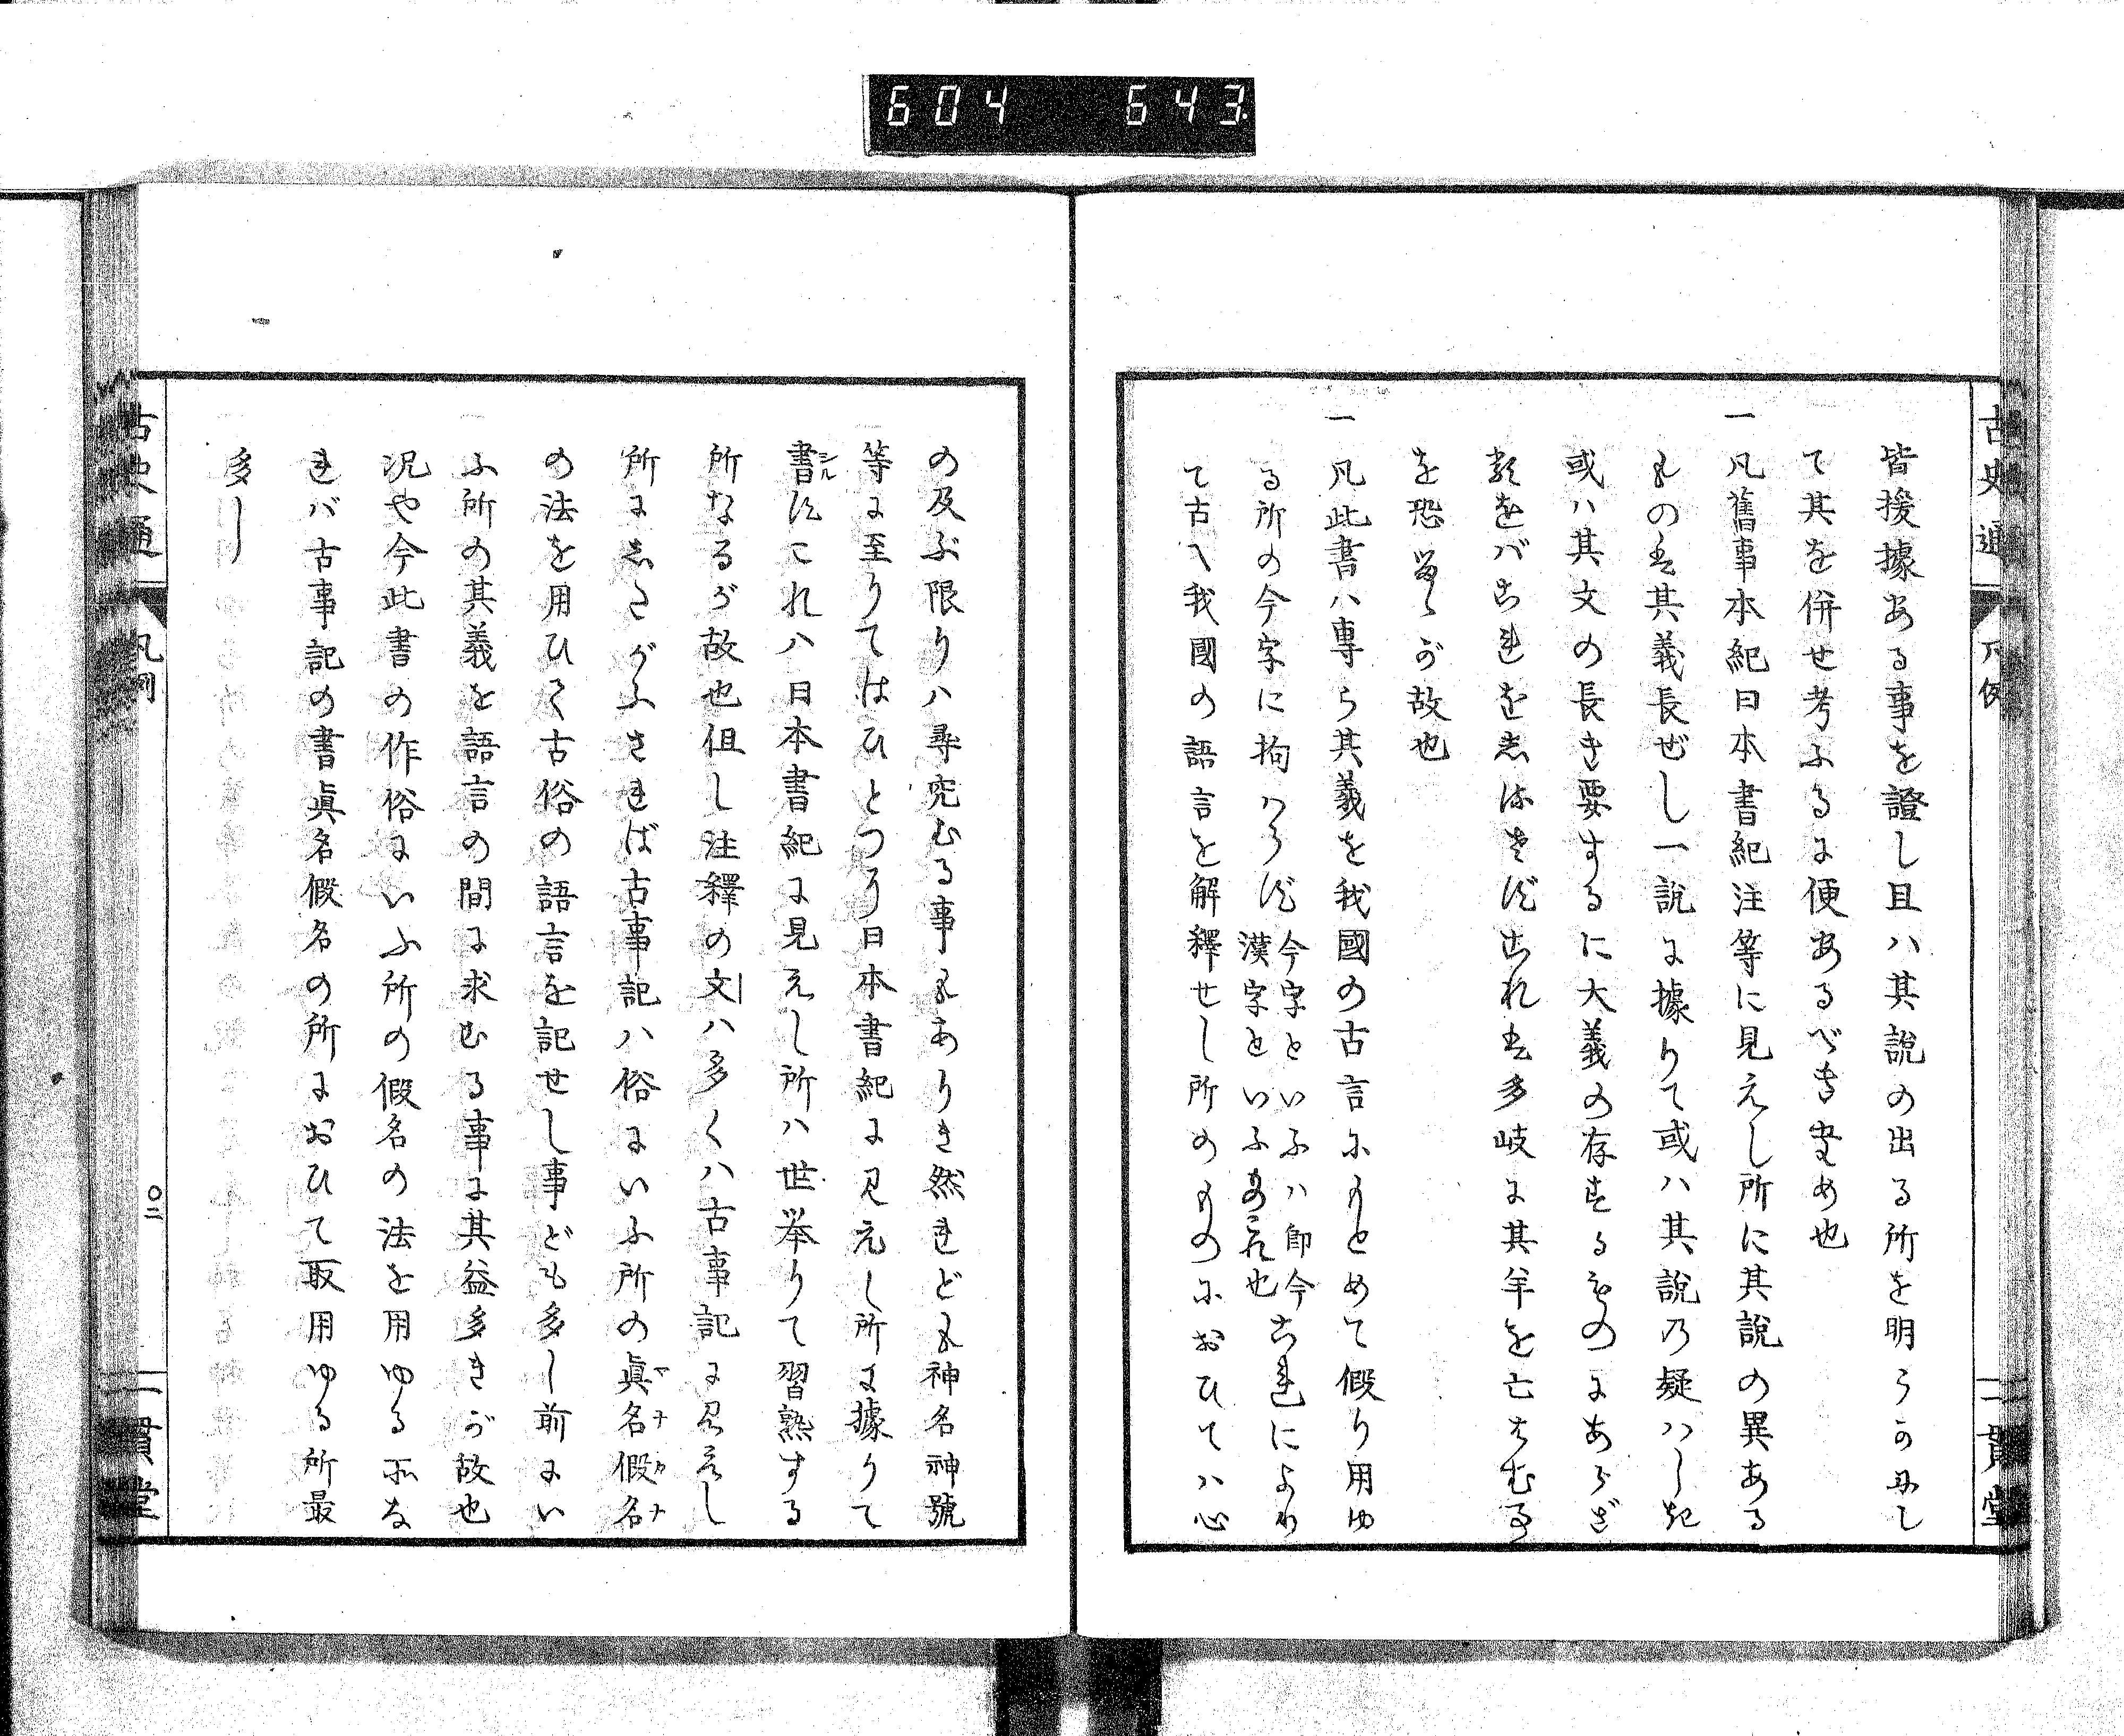 604 643
古史通
凡例
一貫堂
皆援據ある事を證し且ハ其說の出る所を明らかにし
て其を併せ考ふるに便あるべきため也
一凡舊事本紀日本書紀注等に見えし所に其說の異ある
ものハ其義長ぜし一說に據りて或ハ其說乃疑ハしき
或ハ其文の長き要するに大義の存するものにあらざ
類をバこれをしるさずこれハ多岐に其羊を亡はむ事
を恐るゝが故也
一凡此書ハ專ら其義を我國の古言にもとめて假り用ゆ
る所の今字に拘ハらず今字といふハ即今
漢字といふもの也これによりて
て古へ我國の語言を解釋せし所のものにおひてハ心
の及ぶ限りハ尋究むる事もありき然れども神名神號
等に至りてはひとつり日本書紀に見えし所に據りて
書すこれハ日本書紀に見えし所ハ世举りて習熟する
シル
所なるが故也但し注釋の文ハ多くハ古事記に見えし
所にしたがふされば古事記ハ俗にいふ所の眞名假名
マナカナ
の法を用ひて古俗の語言を記せし事ども多し前にい
ふ所の其義を語言の間に求むる事に其益多きが故也
况や今此書の作俗にいふ所の假名の法を用ゆる所な
れバ古事記の書眞名假名の所におひて取用ゆる所最
多し
古史通
凡例
〇二
一貫堂